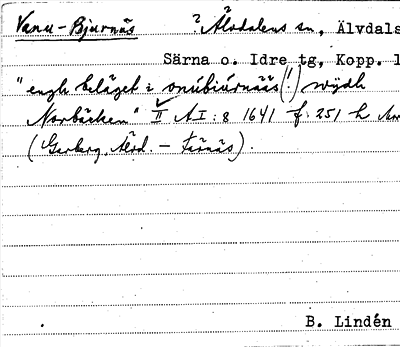 Vanu-Bjurnäs ? Älvdalens sn, Älvdals
Särna o. Idre tg, Kopp. l
"engh beläget i onúbiúrnääs (!) wydh
Norbäcken" II A I:8 1641 f. 251 h
(Garberg, Älvd. - Färnäs).
B. Lindén